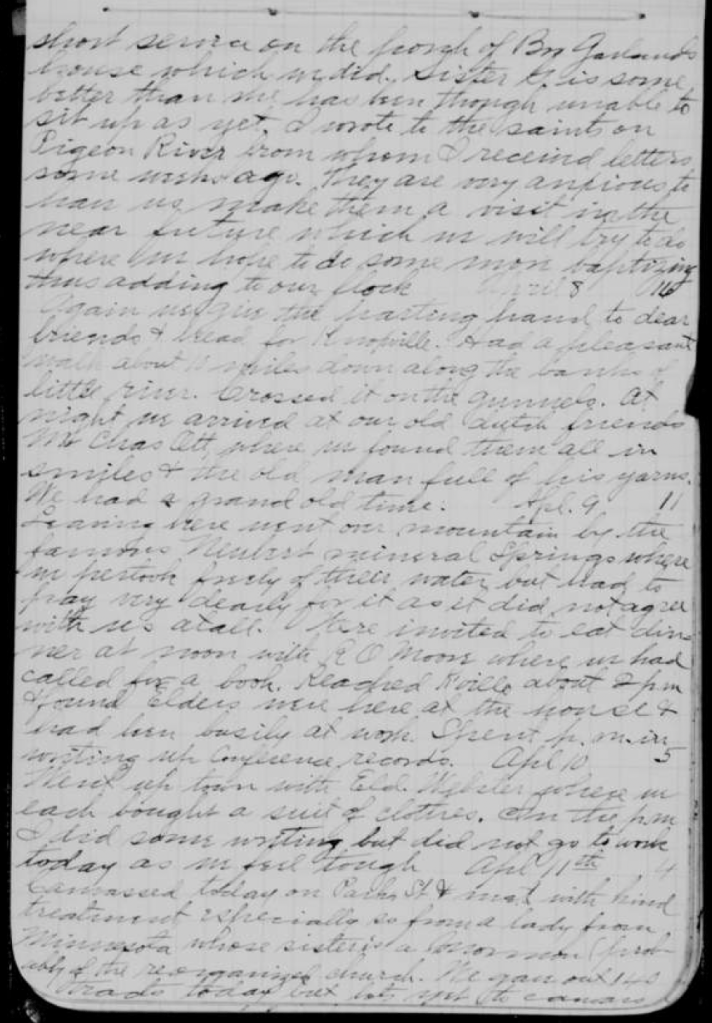 short service on the porch of Bro Garlands
house which we did. Sister G. is some
better than she has been though unable to
sit up as yet. I wrote to the saints on
Pigeon River from whom I received letters
some weeks ago. They are very anxious to
have us make them a visit in the
near future which we will try to do
where we hope to do some more baptizing
thus adding to our flock April 8 16
Again we give the parting hand to dear
friends & head for Knoxville. Had a pleasant
walk about 11 miles down along the banks of
little river. Crossed it on the gunnels. At
night we arrived at our old dutch friends
Mr Chas Ott, where we found them all in
smiles & the old man full of his yarns.
We had a grand old time. Apl. 9 11
Leaving here went over mountain by the
famous Neubert mineral Springs where
we pertook freely of their water but had to
pay very dearly for it as it did not agree
with us atall. Were invited to eat din
ner at noon with R O Moore where we had
called for a book. Reached K'ville about 2 pm
& found Elders were here at the house &
had been busily at work. Spent p.m. in
writing up Conference records. Apl 10 5
Went up town with Eld. Webster where we
each bought a suit of clothes. In the p.m
I did some writing but did not go to work
today as we feel tough Apl 11th 4
Canvassed today on Park St & met with kind
treatment especially so from a lady from
Minnesota whose sister is a mormon (prob
ably of the reorganized church. We gave out 140
tracts today but lots yet to canvass